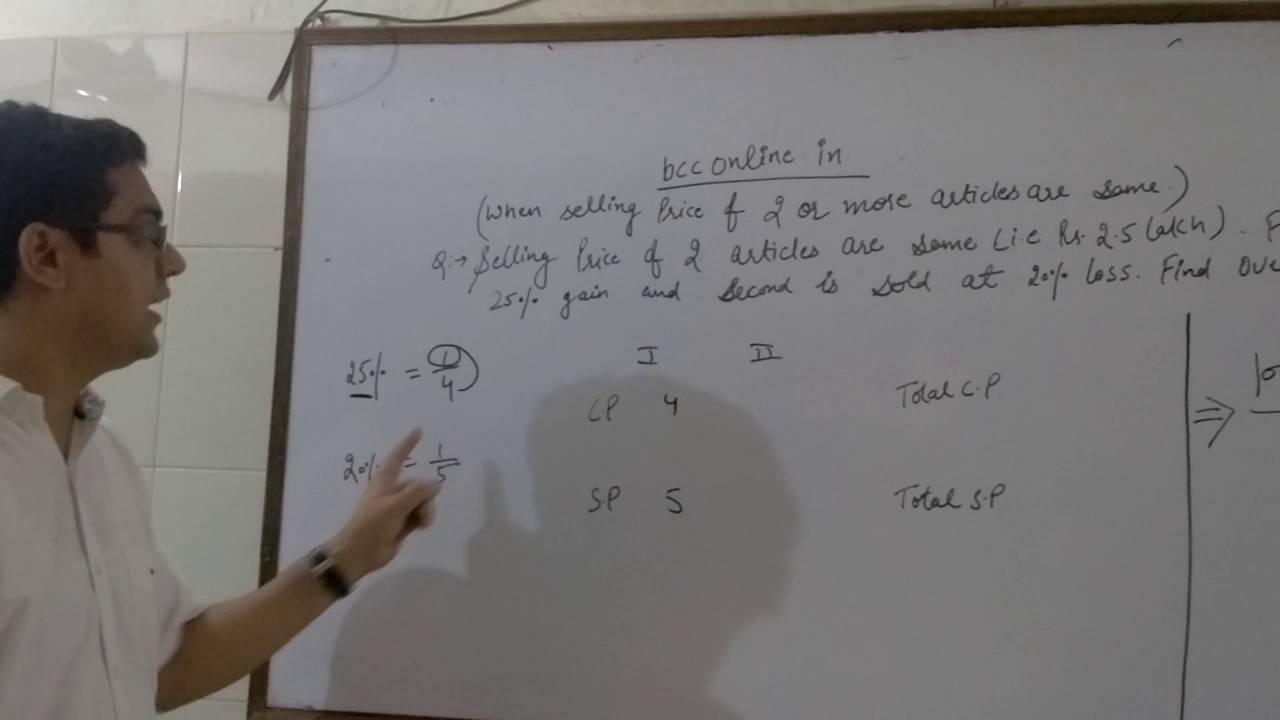 bcconline.in
(when selling Price of 2 or more articles are same.)
Q:→ Selling Price of 2 articles are same (i.e Rs. 2.5 lakh). F
25% gain and second is sold at 20% loss. Find Ove
25% = 1/4
I II
CP 4
Total C.P
20% = 1/5
S.P 5
Total S.P
⇒ 10